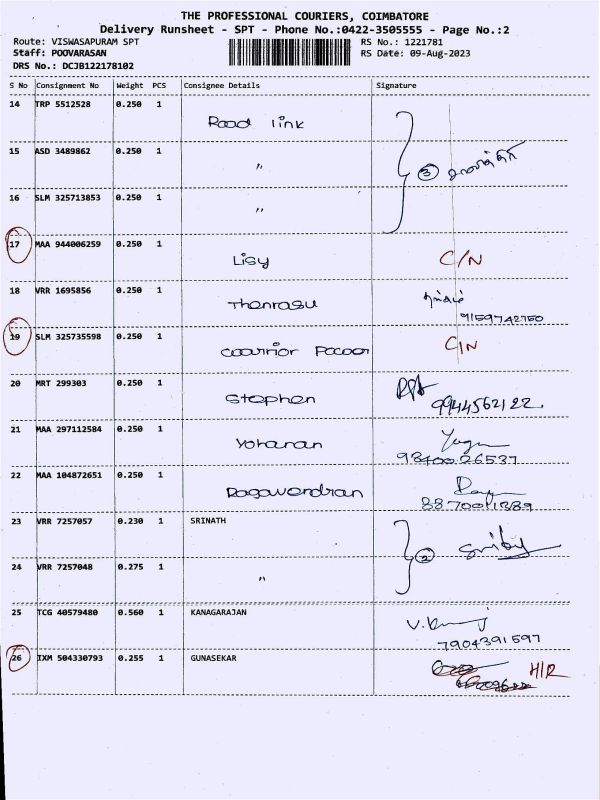 THE PROFESSIONAL COURIERS, COIMBATORE
Delivery Runsheet - SPT - Phone No.:0422-3505555 - Page No.:2
Route: VISWASAPURAM SPT RS No.: 1221781
Staff: POOVARASAN RS Date: 09-Aug-2023
DRS No.: DCJB122178102
S No Consignment No Weight PCS Consignee Details Signature
14 TRP 5512528 0.250 1 Road link
15 ASD 3489862 0.250 1 " 3
16 SLM 325713853 0.250 1 "
17 MAA 944006259 0.250 1 Lisy C/N
18 VRR 1695856 0.250 1 Thenrasu
9159742750
19 SLM 325735598 0.250 1 C/N
20 MRT 299303 0.250 1 Stephen
9944562122.
21 MAA 297112584 0.250 1 Yohanan
9840026537
22 MAA 104872651 0.250 1 Ragavendran
23 VRR 7257057 0.230 1 SRINATH 2
24 VRR 7257048 0.275 1 "
25 TCG 40579480 0.560 1 KANAGARAJAN
7904391597
26 IXM 504330793 0.255 1 GUNASEKAR H/R